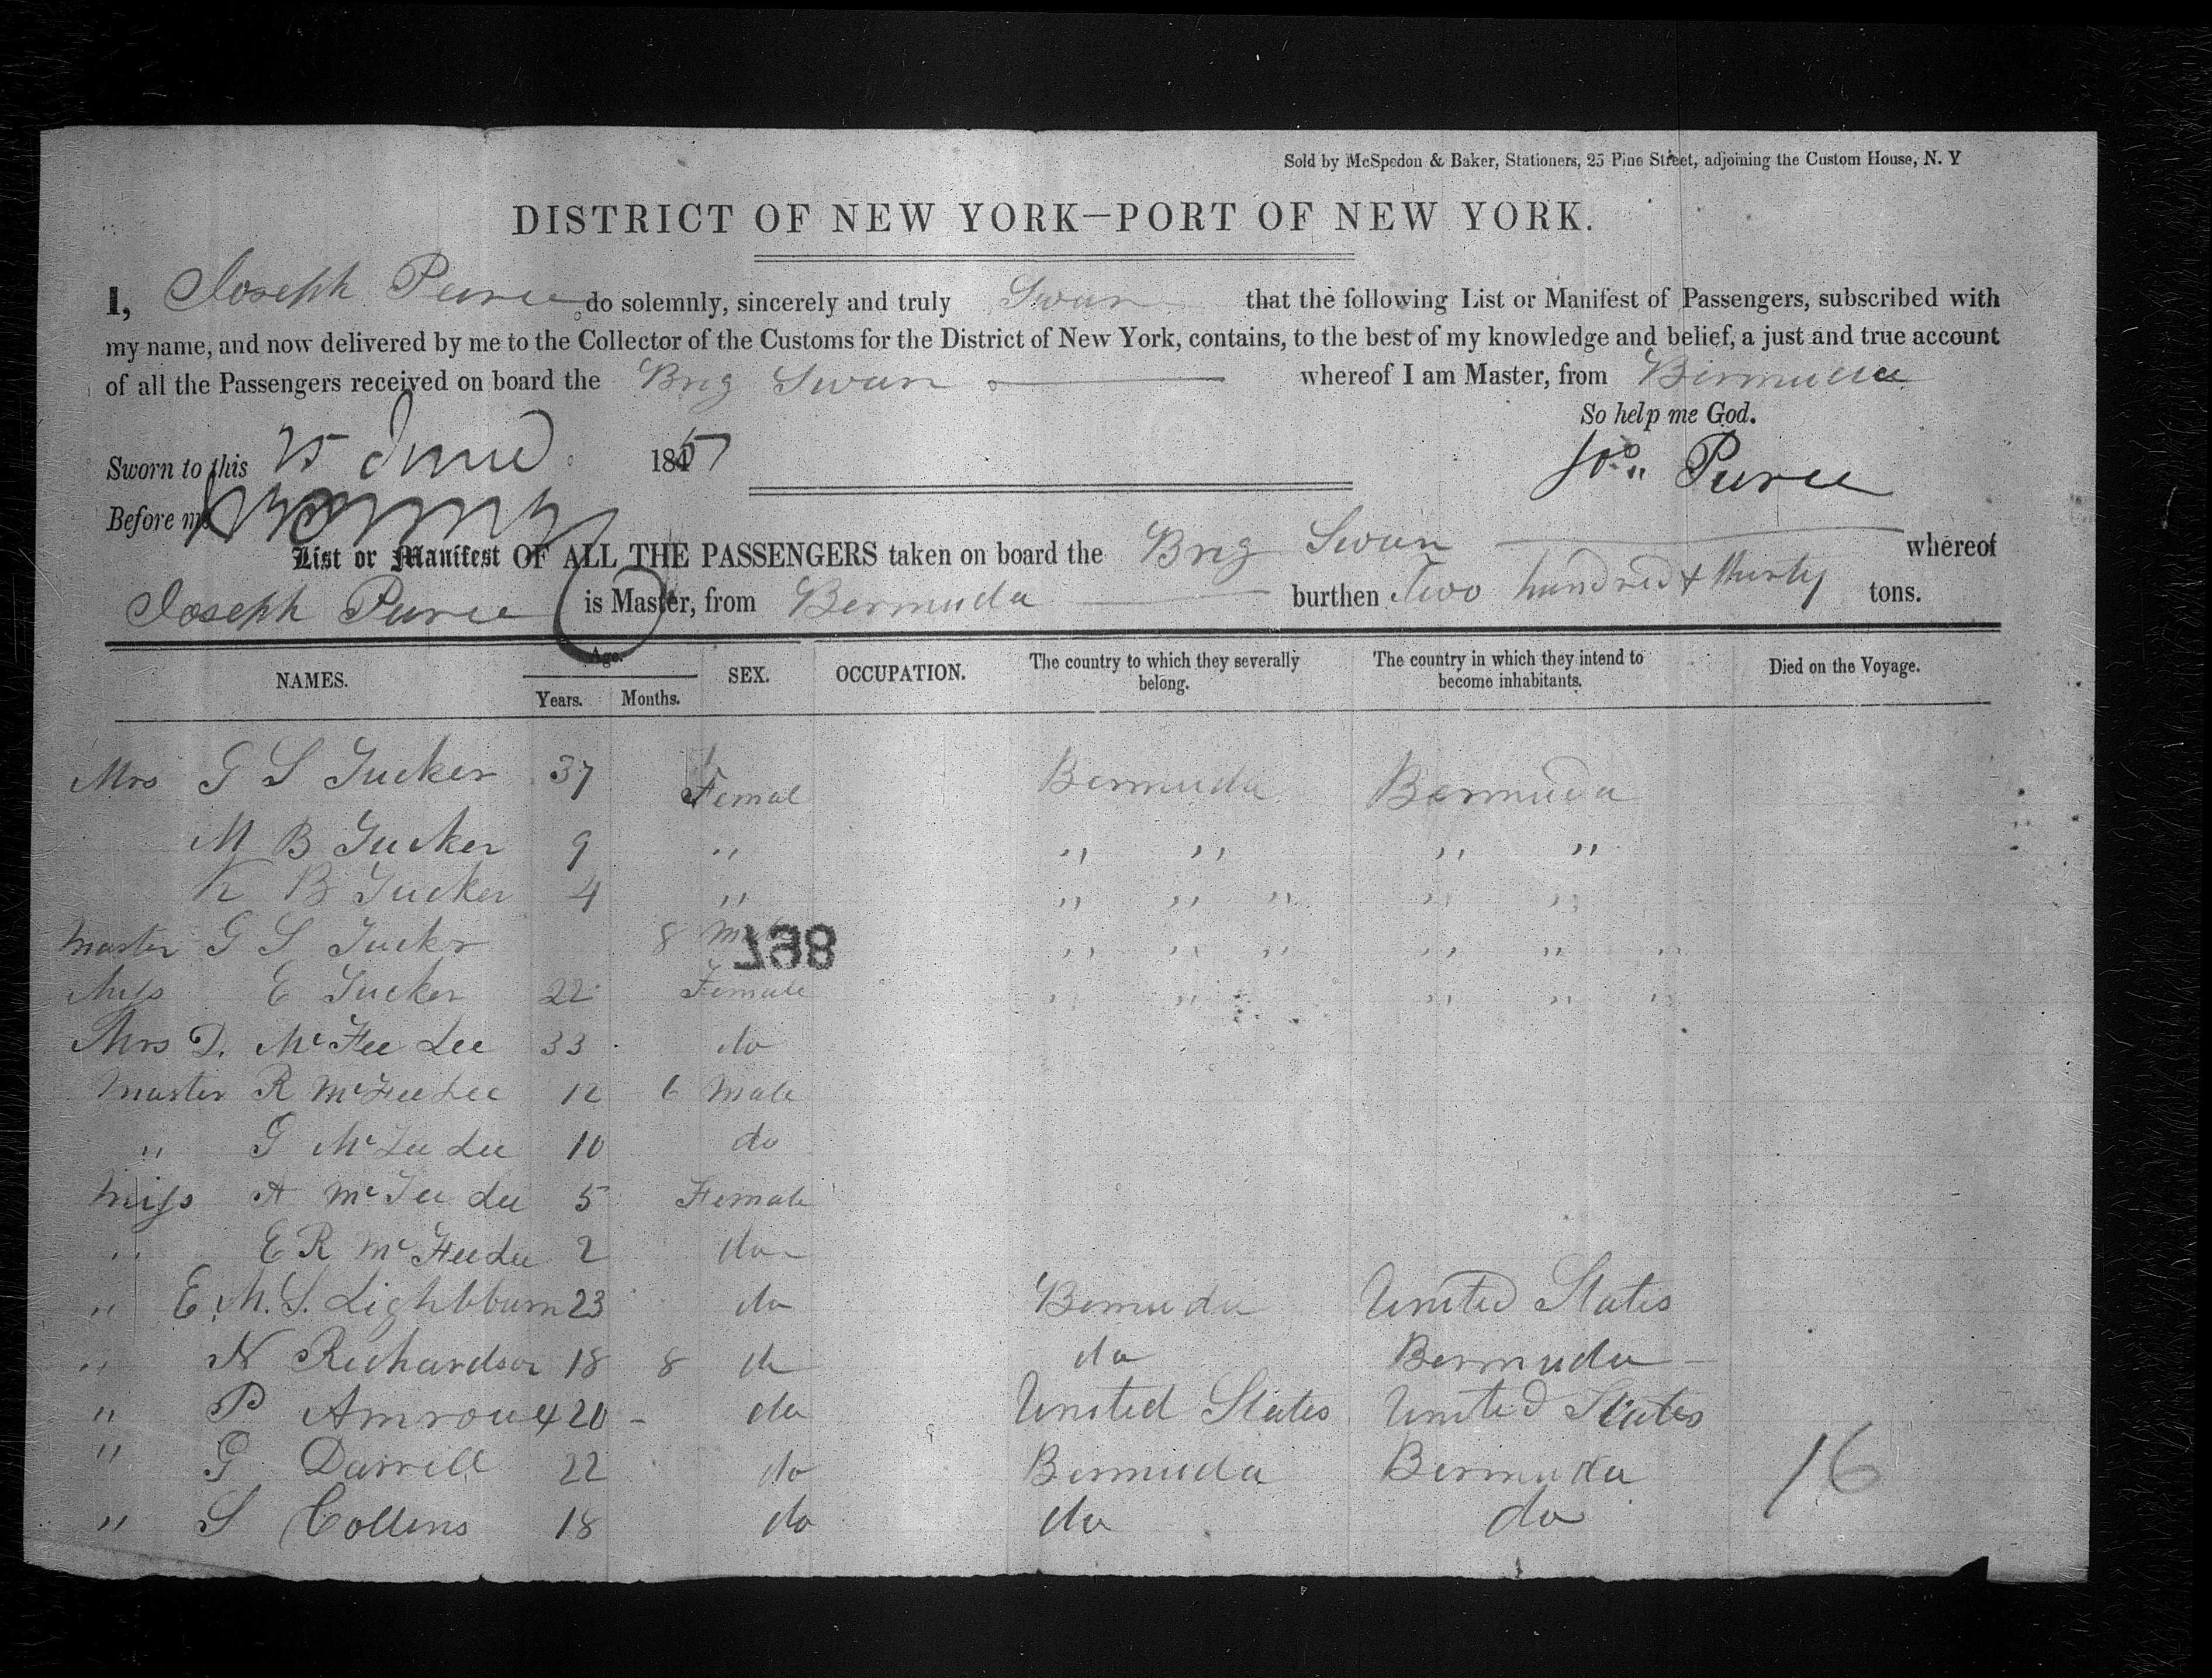 Sold by McSpedon & Baker, Stationers, 25 Pine Street, adjoining the Custom House, N. Y
DISTRICT OF NEW YORK—PORT OF NEW YORK.
I, Joseph Purce do solemnly, sincerely and truly Swan that the following List or Manifest of Passengers, subscribed with
my name, and now delivered by me to the Collector of the Customs for the District of New York, contains, to the best of my knowledge and belief, a just and true account
of all the Passengers received on board the Brig Swan whereof I am Master, from Bermuda
So help me God.
Sworn to this 25 June 1857
Jos. Purce
Before me
List or Manifest OF ALL THE PASSENGERS taken on board the Brig Swan whereof
Joseph Purce is Master, from Bermuda burthen Two hundred & thirty tons.
NAMES. Age. Years. Months. SEX. OCCUPATION. The country to which they severally belong. The country in which they intend to become inhabitants. Died on the Voyage.
Mrs G S Tucker 37 Femal Bermuda Bermuda
M B Tucker 9 " " " " "
K B Tucker 4 " " " " " "
Master G S Tuckr 8 " " " " " "
738
Miss E Tucker 22 Female " " " " "
Mrs D. McFee Lee 33 do
Master R McFee Lee 12 6 Male
" G McFee Lee 10 do
Miss A McFee Lee 5 Female
" E R McFee Lee 2 do
" E. M. S. Lightbburn 23 do Bermuda United States
" N Richardson 18 8 do do Bermuda
" P 20 - do United States United States
" G Darrell 22 do Bermuda Bermuda
16
" S Collins 18 do do do